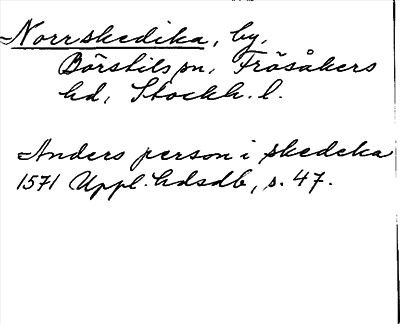 Norrskedika, by,
Börstils sn, Frösåkers
hd, Stockh. l.
Anders person i skedeka
1571 Uppl. hdsdb, s. 47.